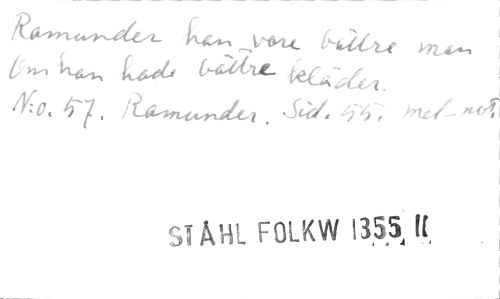 Ramunder han vore bättre man
Om han hade bättre kläder.
N:o. 57. Ramunder. Sid. 55. mel-not.
STÅHL FOLKW 1355 II